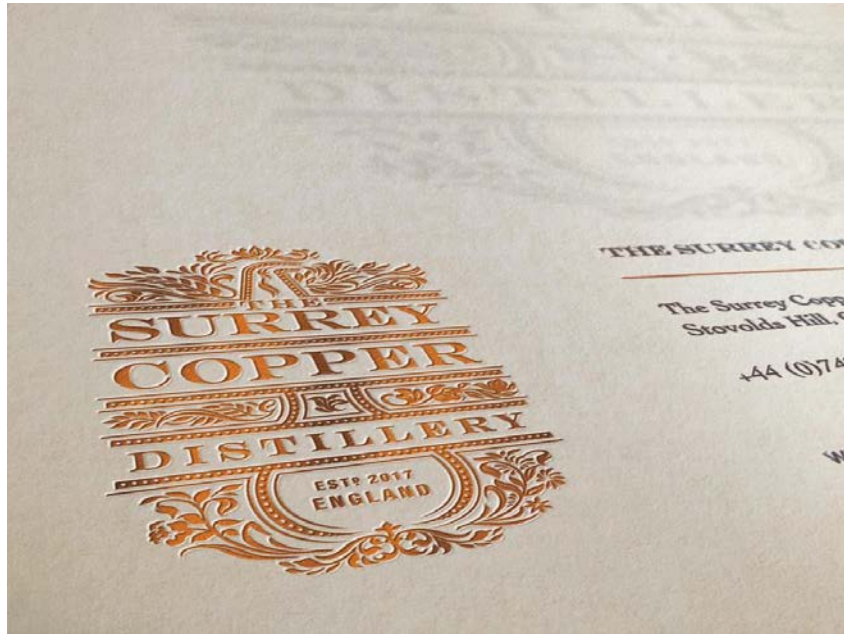 DISTILLER
ENGLAND
THE
SURREY
COPPER
DISTILLERY
ESTD 2017
ENGLAND
THE SURREY CO
The Surrey Copp
Stovolds Hill, C
+44 (0)74
W